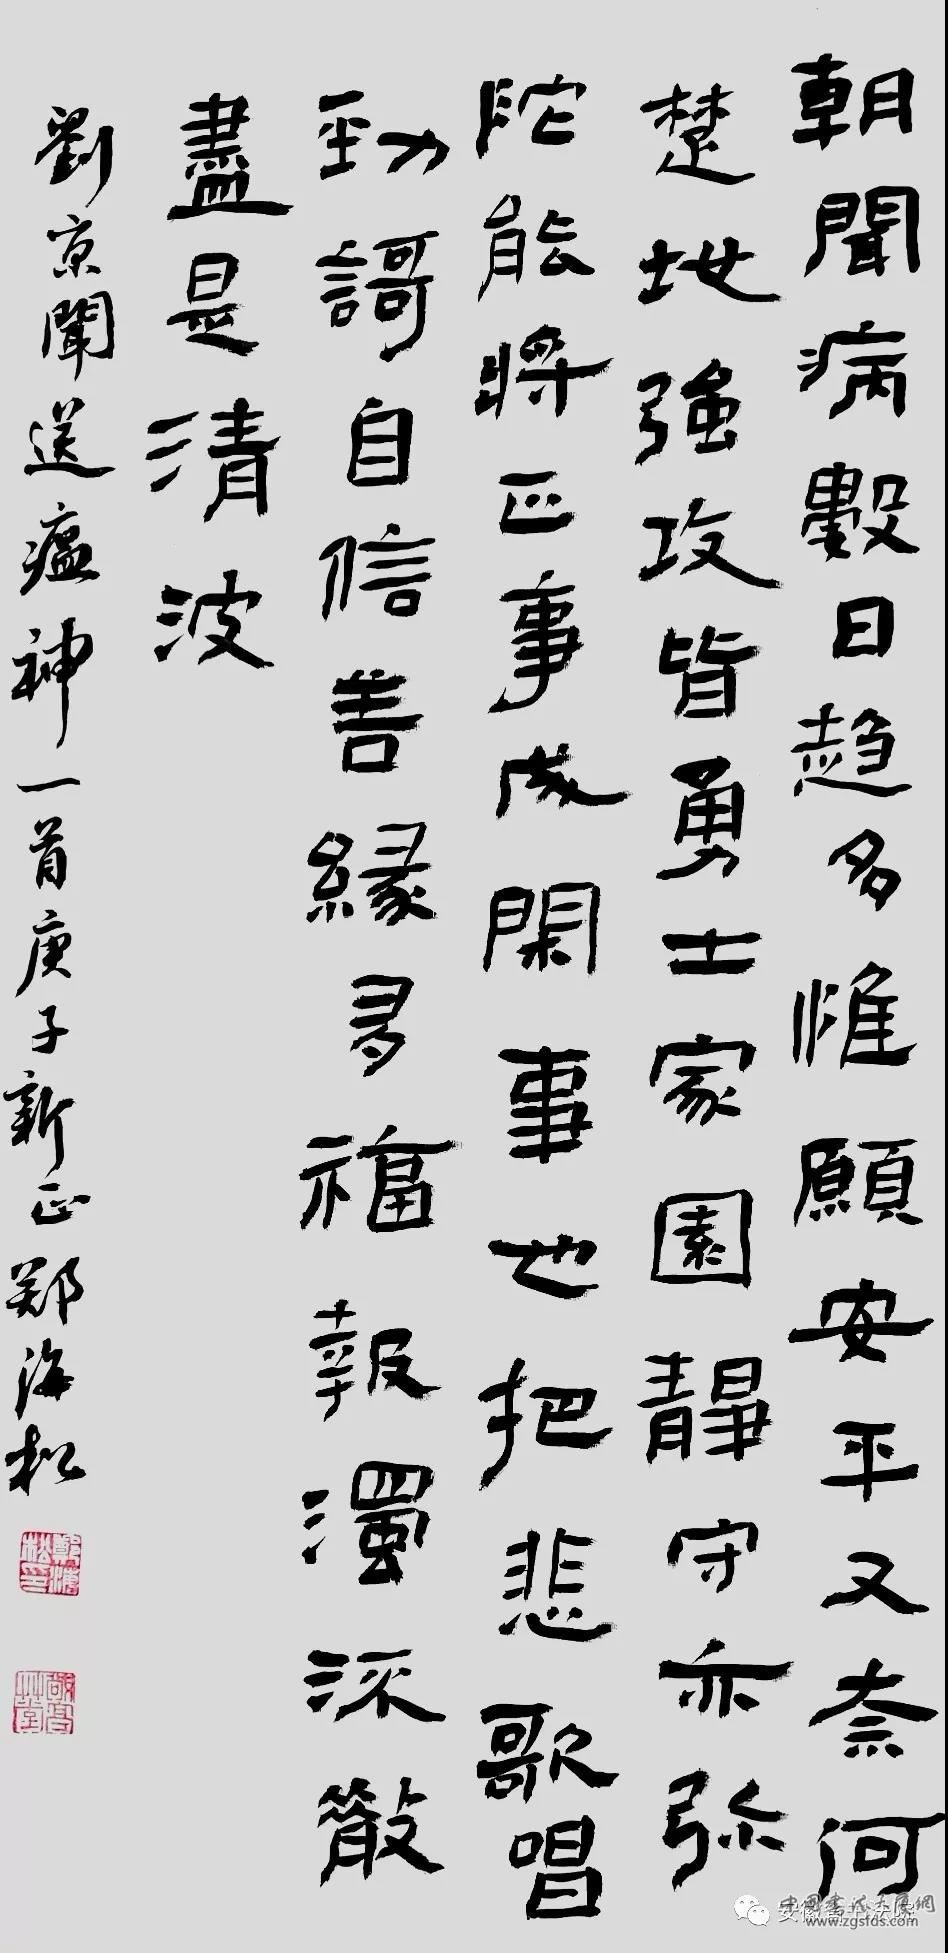 朝聞病數日趨多惟願安平又奈何
楚地強攻皆勇士家園靜守亦弥
陀能將正事成閑事也把悲歌唱
勁謌自信善緣多福報濁流散
盡是清波
劉京聞送瘟神一首庚子新正鄭海松
鄭海松印
www.zgsfds.com